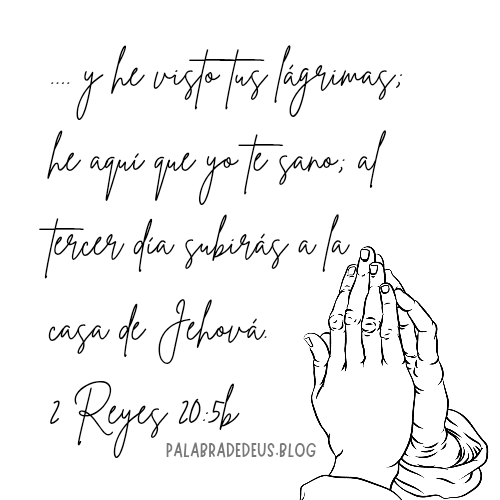 .... y he visto tus lágrimas;
he aquí que yo te sano; al
tercer día subirás a la
casa de Jehová.
2 Reyes 20:5b
PALABRADEDEUS.BLOG